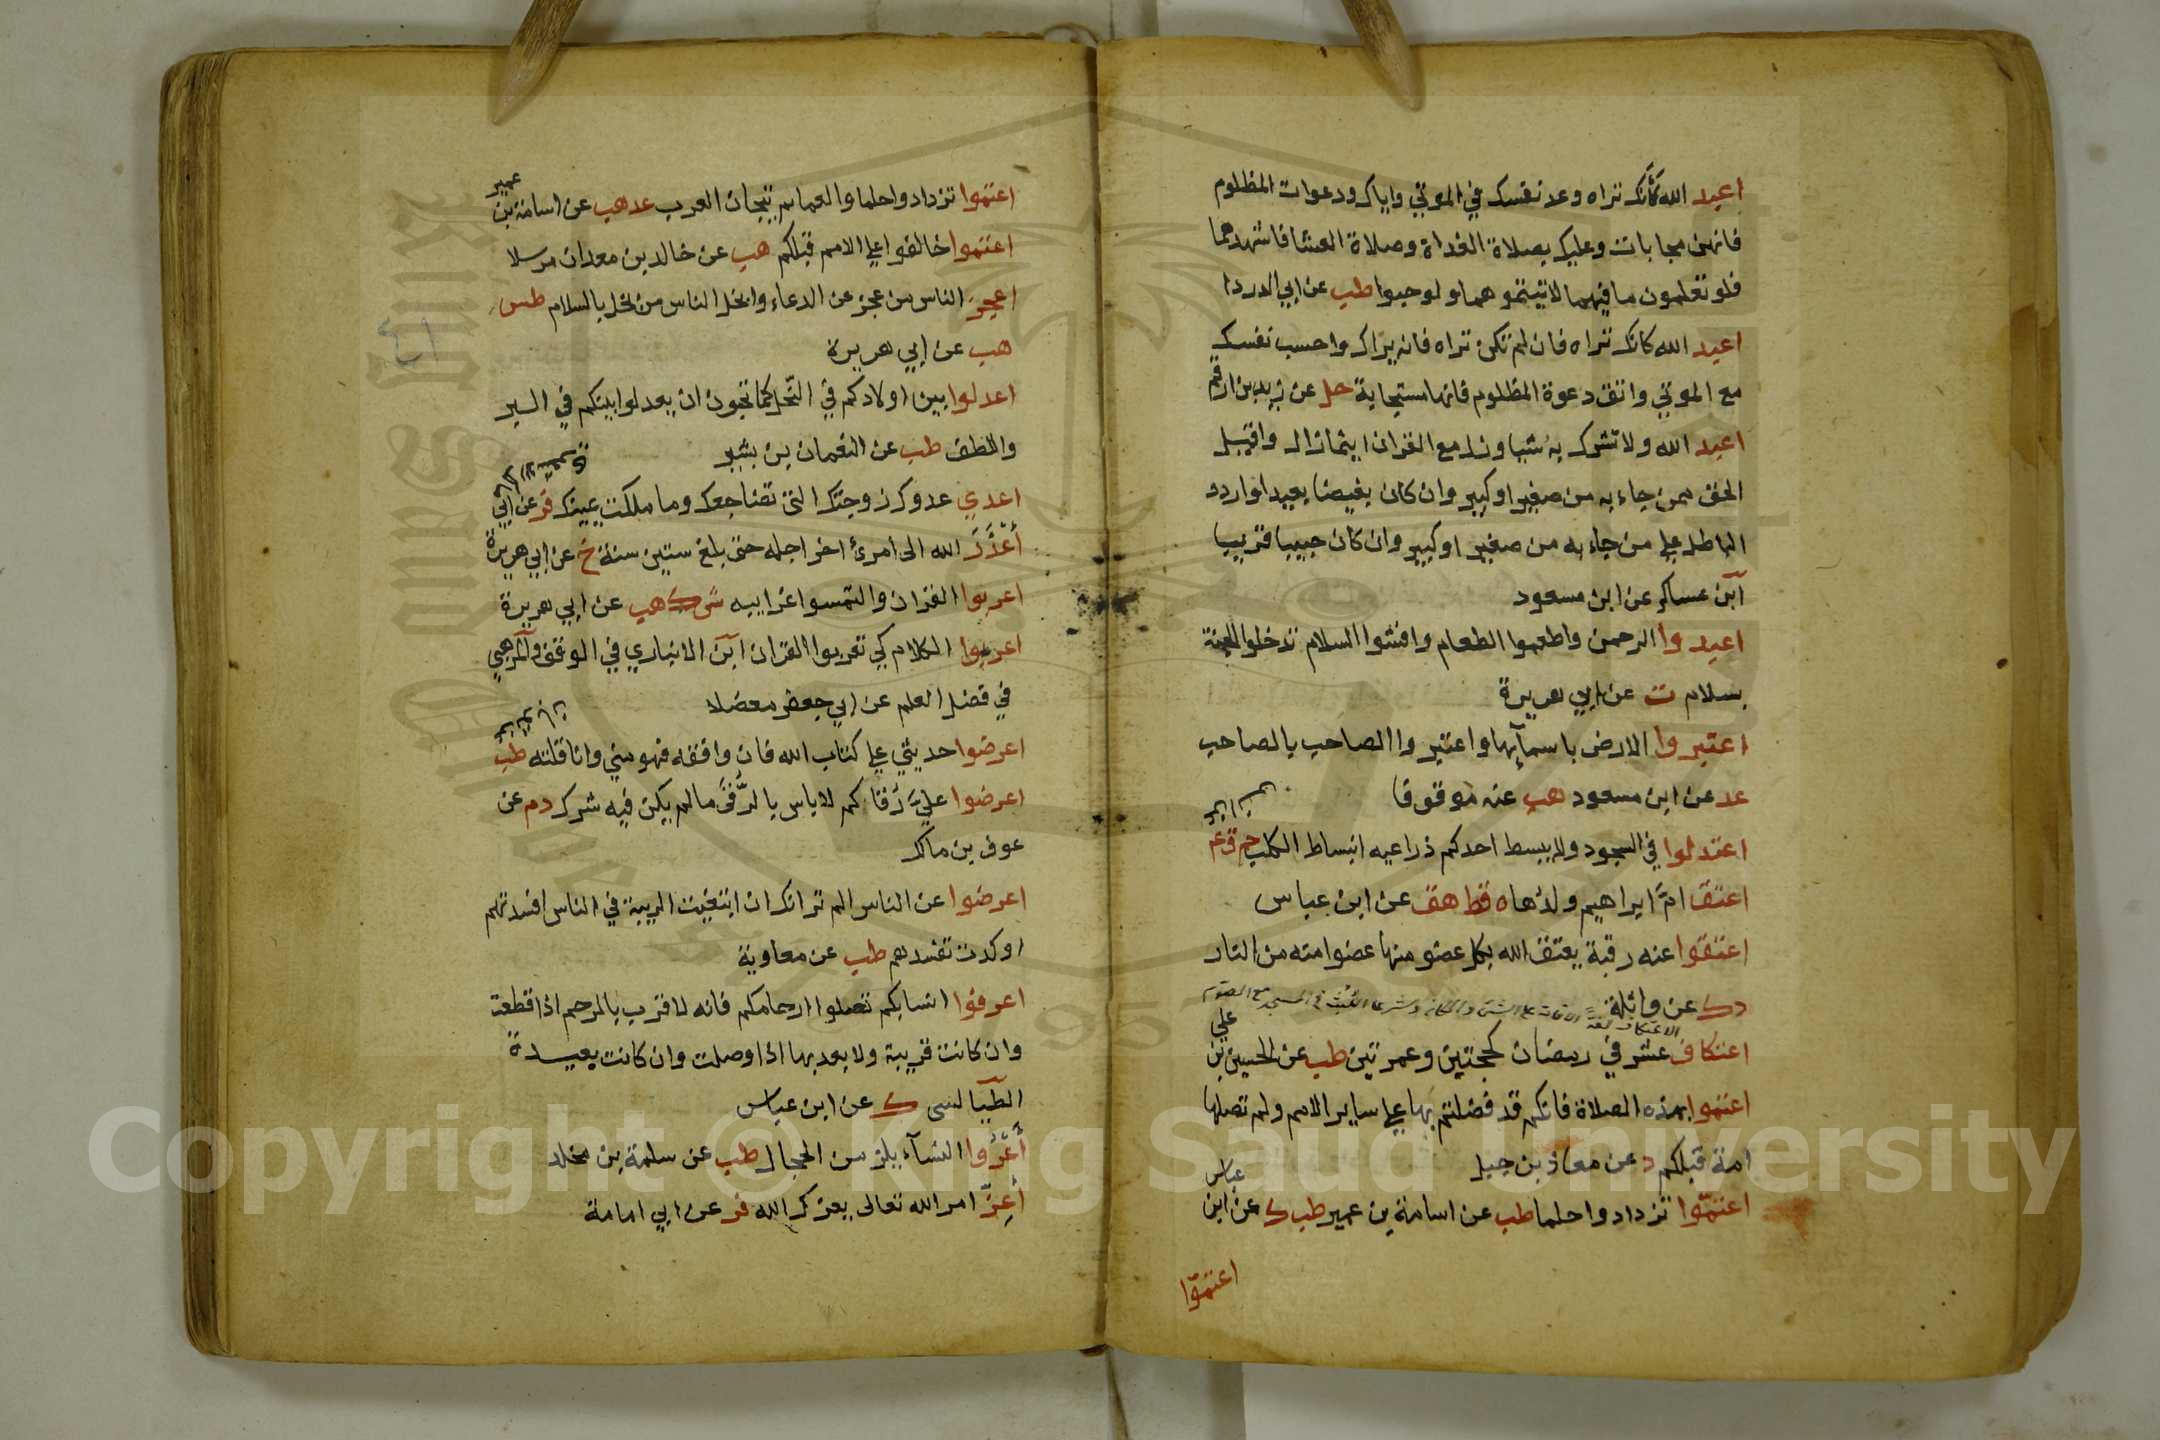 اعبد الله كأنك تراه وعد نفسك في الموتي واياك ودعوات المظلوم
فانهن مجابات وعليك بصلاة الغداة وصلاة العشا فاشهدهما
فلو تعلمون ما فيهما لاتيتموهما ولو حبوا طب عن ابي الدردا
اعبد الله كانك تراه فان لم تكن تراه فانه يراك واحسب نفسك
مع الموتي واتق دعوة المظلوم فانها مستجابة حل عن زيد بن ارقم
اعبد الله ولا تشرك به شيا وزل مع القران اينما زال واقبل
الحق ممن جاء به من صغير او كبير وان كان بغيضا بعيدا واردد
الباطل علي من جاء به من صغير او كبير وان كان حبيبا قريبا
ابن عساكر عن ابن مسعود
اعبدوا الرحمن واطعموا الطعام وافشوا السلام تدخلوا الجنة
بسلام ت عن ابي هريرة
اعتبروا الارض باسمآيها واعتبروا الصاحب بالصاحب
عد عن ابن مسعود هب عنه موقوفا
اعتدلوا في السجود ولا يبسط احدكم ذراعيه انبساط الكلب حم ق ع
اعتق ام ابراهيم ولدها ه قط هق عن ابن عباس
اعتقوا عنه رقبة يعتق الله بكل عضو منها عضوا منه من النار
د ك عن واثلة
اعتكاف عشر في رمضان كحجتين وعمرتين طب عن الحسين بن
علي
اعتموا بهذه الصلاة فانكم قد فضلتم بها علي ساير الامم ولم تصلها
امة قبلكم د عن معاذ بن جبل
اعتمّوا تزدادوا حلما طب عن اسامة بن عمير طب ك عن ابن
عباس
اعتموّا
عمير
اعتموا تزدادوا حلما والعمايم تيجان العرب عد هب عن اسامة بن
اعتموا خالفوا علي الامم قبلكم هب عن خالد بن معدان مرسلا
اعجز الناس من عجز عن الدعاء وابخل الناس من بخل بالسلام طس
هب عن ابي هريرة
اعدلوا بين اولادكم في النحل كما تحبون ان يعدلوا بينكم في البر
واللطف طب عن النعمان بن بشير
اعدي عدوك زوجتك التي تضاجعك وما ملكت يمينك فر عن ابي
أعْذَرَ الله الى امرئ اخر اجله حتى بلغ ستين سنة خ عن ابي هريرة
اعربوا القران والتمسوا غراييه ش ك هب عن ابي هريرة
اعربوا الكلام كي تعربوا القران ابن الانباري في الوقف والمرهبي
في فضل العلم عن ابي جعفر معضلا
اعرضوا حديثي علي كتاب الله فان وافقه فهو مني وانا قلته طب
اعرضوا عليّ رقاكم لاباس بالرُّقَى ما لم يكن فيه شرك دم عن
عوف بن مالك
اعرضوا عن الناس الم تر انك ان ابتغيت الريبة في الناس افسدتهم
او كدت تفسدهم طب عن معاوية
اعرفوا انسابكم تصلوا ارحامكم فانه لا قرب بالرحم اذا قطعت
وان كانت قريبة ولا بعد بها اذا وصلت وان كانت بعيدة
الطيالسى ك عن ابن عباس
أَعْرُوا النسآء يلزمن الحجال طب عن سلمة بن مخلد
أَعِزّ امر الله تعالى يعزك الله فر عن ابي امامة
٤١
Copyright © King Saud University